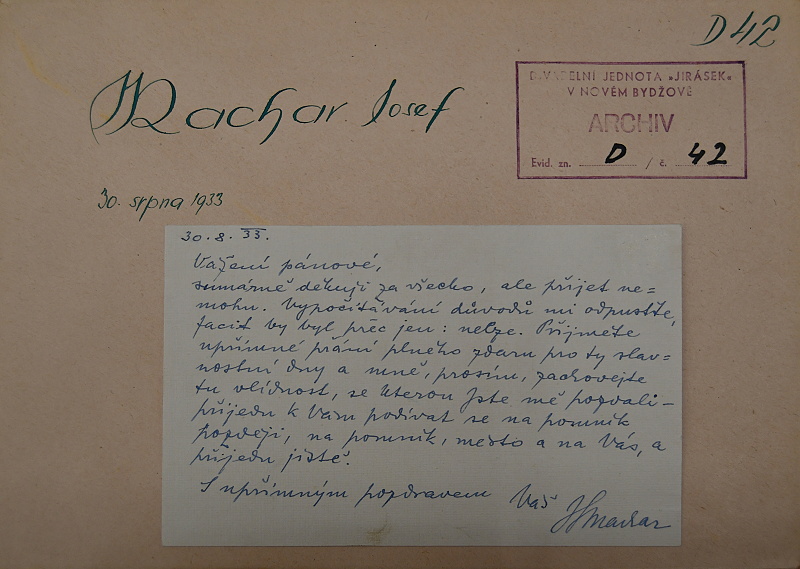 D 42
Machar Josef
DIVADELNÍ JEDNOTA »JIRÁSEK«
V NOVÉM BYDŽOVĚ
ARCHIV
Evid. zn. D / č. 42
30. srpna 1933
30. 8. 33.
Vážení pánové,
sumárně děkuji za všecko, ale přijet ne=
mohu. Vypočítávání důvodů mi odpusťte,
facit by byl přec jen: nelze. Přijměte
upřímné přání plného zdaru pro ty slav=
nostní dny a mně, prosím, zachovejte
tu vlídnost, se kterou jste mě pozvali –
přijedu k Vám podívat se na pomník
později, na pomník, město a na Vás, a
přijedu jistě.
S upřímným pozdravem Váš
JSMachar